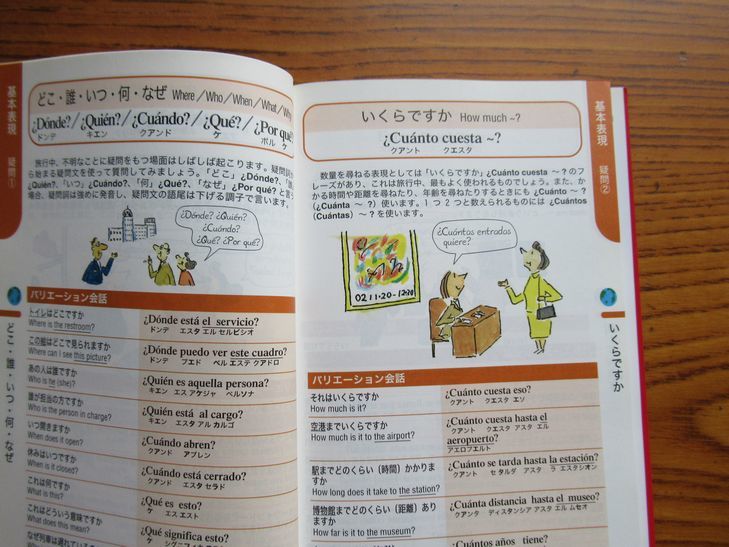 基本表現
疑問①
どこ・誰・いつ・何・なぜ Where／Who／When／What／Why
¿Dónde?／¿Quién?／¿Cuándo?／¿Qué?／¿Por qué
ドンデ キエン クアンド ケ ポル ケ
旅行中、不明なことに疑問をもつ場面はしばしば起こります。疑問詞
ら始まる疑問文を使って質問してみましょう。「どこ」¿Dónde?、「誰
¿Quién?、「いつ」¿Cuándo?、「何」¿Qué?、「なぜ」¿Por qué? と言う
場合、疑問詞は強めに発音し、疑問文の語尾は下げる調子で言います。
¿Dónde? ¿Quién?
¿Cuándo?
¿Qué? ¿Por qué?
バリエーション会話
トイレはどこですか
Where is the restroom?
¿Dónde está el servicio?
ドンデ エスタ エル セルビシオ
この絵はどこで見られますか
Where can I see this picture?
¿Dónde puedo ver este cuadro?
ドンデ プエド ベル エステ クアドロ
あの人は誰ですか
Who is he (she)?
¿Quién es aquella persona?
キエン エス アケジャ ペルソナ
誰が担当の方ですか
Who is the person in charge?
¿Quién está al cargo?
キエン エスタ アル カルゴ
いつ開きますか
When does it open?
¿Cuándo abren?
クアンド アブレン
休みはいつですか
When is it closed?
¿Cuándo está cerrado?
クアンド エスタ セラド
これは何ですか
What is this?
¿Qué es esto?
ケ エス エスト
これはどういう意味ですか
What does this mean?
¿Qué significa esto?
なぜ列車は遅れている
どこ・誰・いつ・何・なぜ
いくらですか How much ~?
¿Cuánto cuesta ~?
クアント クエスタ
数量を尋ねる表現としては「いくらですか」¿Cuánto cuesta ～？の
フレーズがあり、これは旅行中、最もよく使われるものでしょう。また、か
かる時間や距離を尋ねたり、年齢を尋ねたりするときにも ¿Cuánto ～？
(¿Cuánta ～？) 使います。1つ2つと数えられるものには ¿Cuántos
(Cuántas) ～？を使います。
¿Cuántas entradas
quiere?
02 11:20-12:20
バリエーション会話
それはいくらですか
How much is it?
¿Cuánto cuesta eso?
クアント クエスタ エソ
空港までいくらですか
How much is it to the airport?
¿Cuánto cuesta hasta el
クアント クエスタ アスタ エル
aeropuerto?
アエロプエルト
駅までどのくらい（時間）かかりま
すか
How long does it take to the station?
¿Cuánto se tarda hasta la estación?
クアント セ タルダ アスタ ラ エスタシオン
博物館までどのくらい（距離）あり
ますか
How far is it to the museum?
¿Cuánta distancia hasta el museo?
クアンタ ディスタンシア アスタ エル ムセオ
¿Cuántos años tiene?
基本表現
疑問②
いくらですか